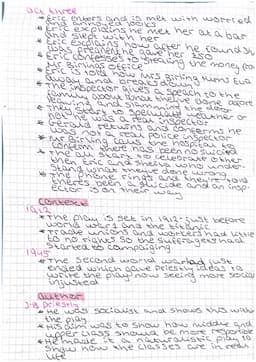 act three
* Eric enters and is met with worried
and stunned looks
* Eric explains he met her at a bar
and slept with her
* Eric explains how after he found she
was pregnant gave her £50
* Eric confesses to stealing the money from
his office
* Eric is told how Mrs Birling turned Eva
away and breaks down
* The inspector gives a speech to the
family about what they've done before
leaving and slamming the door
* They start to speculate weather or
not he was a real inspector
* Gerald returns and confirms he
was not a real police inspector
* Birling calls the hospital to
confirm there has been no suicide
* The all start to celebrate other
then Eric and Sheila who under-
stand what they've done wrong
* The phone rings and they're told
there's been a suicide and an insp-
ector is on their way
Context
1912
* The play is set in 1912 - just before
world war 1 and the titanic
* Trade unions and workers had little
to no rights so the suffragets had
started to campaigning
1945
* The second world war had just
ended which gave Priestly ideas to
write the play now seeing more social
injusted
author
J-B Priestly
* He was socialist and shows this within
the play
* His aim was to show how middle and
upper class should be more responsible
* He made it a naturalistic play to
show how the classes are in real
life